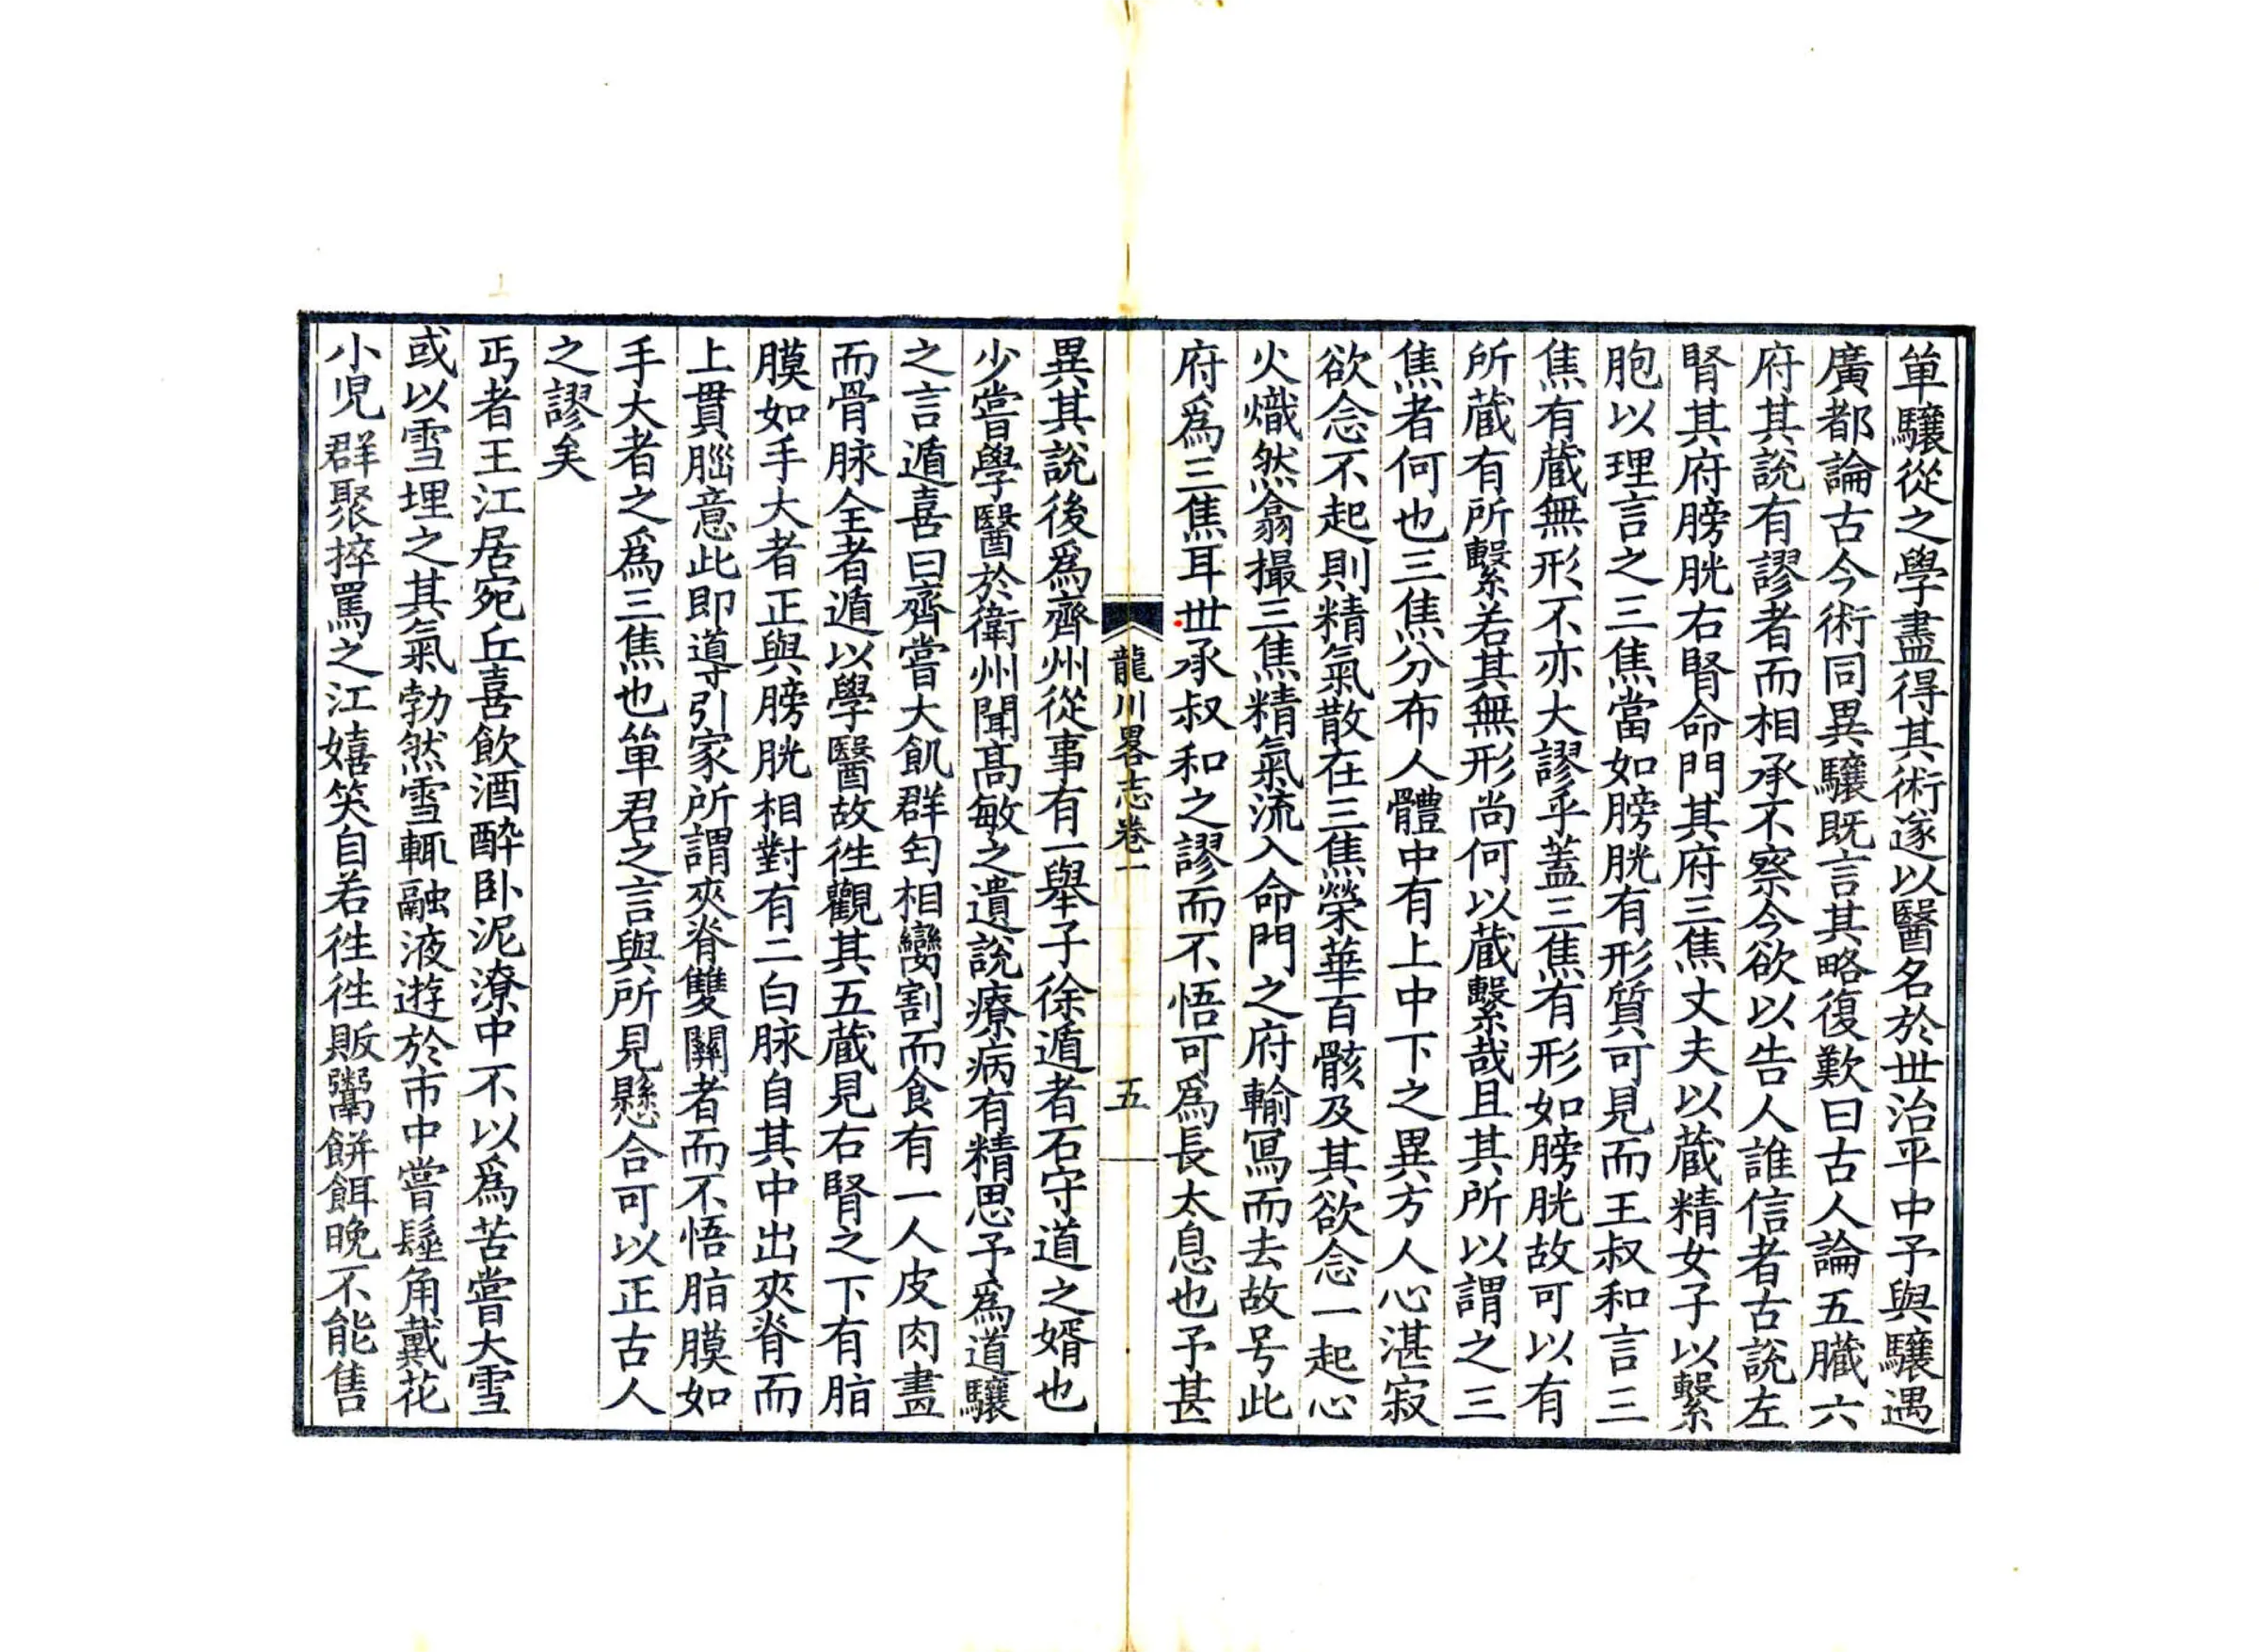 單驤從之學盡得其術遂以醫名於世治平中予與驤遇
廣都論古今術同異驤既言其略復歎曰古人論五臟六
府其說有謬者而相承不察今欲以告人誰信者古說左
腎其府膀胱右腎命門其府三焦丈夫以蔵精女子以繫
胞以理言之三焦當如膀胱有形質可見而王叔和言三
焦有蔵無形不亦大謬乎蓋三焦有形如膀胱故可以有
所蔵有所繫若其無形尚何以蔵繫哉且其所以謂之三
焦者何也三焦分布人體中有上中下之異方人心湛寂
欲念不起則精氣散在三焦榮華百骸及其欲念一起心
火熾然翕撮三焦精氣流入命門之府輸冩而去故号此
府爲三焦耳世承叔和之謬而不悟可爲長太息也予甚
龍川畧志卷一
五
異其說後爲齊州從事有一舉子徐遁者石守道之婿也
少甞學醫於衛州聞髙敏之遺說療病有精思予爲道驤
之言遁喜曰齊甞大飢群匄相臠割而食有一人皮肉盡
而骨脉全者遁以學醫故徃觀其五蔵見右腎之下有脂
膜如手大者正與膀胱相對有二白脉自其中出夾脊而
上貫腦意此即導引家所謂夾脊雙關者而不悟脂膜如
手大者之爲三焦也單君之言與所見懸合可以正古人
之謬矣
丐者王江居宛丘喜飲酒醉卧泥潦中不以爲苦甞大雪
或以雪埋之其氣勃然雪輒融液遊於市中甞髽角戴花
小児群聚捽罵之江嬉笑自若徃徃販鬻餅餌晚不能售